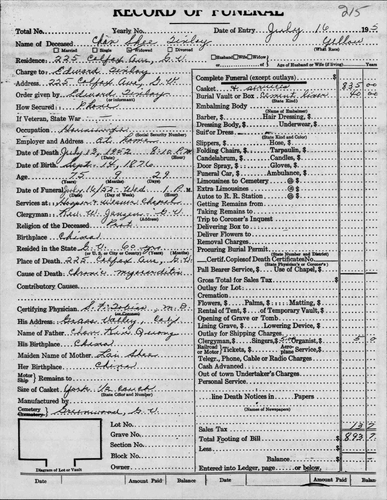 RECORD OF FUNERAL
215
Total No. Yearly No. Date of Entry July 16 195
Name of Deceased Chan Shee Yellow
Married Single Widowed Divorced Husband Wife of (What Race)
Residence: 225 Colfax Ave., G.V. Age of Husband or Wife (if living)
Charge to Edward
Address 225 Colfax Ave, G.V.
Order given by Edward
(or informant)
How Secured Phone
If Veteran, State War —
Occupation Housewife
(Social Security Number)
Employer and Address At Home
Date of Death July 13, 1952 8:10 P.M.
Date of Birth Sept. 14, 1876
Age 75 9 29
Date of Funeral July 16/52 - Wed. 1 P.M.
Services at Hooper & Weaver Chapel
Clergyman Rev. W. G.V.
Religion of the Deceased Prot
Birthplace China
Resided in the State G.V. 60 yrs
(or U.S. or City or County)
Place of Death 225 Colfax Ave, G.V.
Cause of Death Chronic myocarditis
Contributory Causes
Certifying Physician M.D.
His Address Grass Valley, Calif
Name of Father Chan Quong
His Birthplace China
Maiden Name of Mother Shee
Her Birthplace China
Motor Ship Remains to
Size of Casket York couch
(State Color and Number)
Manufactured by
Cemetery Crematory Greenwood G.V.
Lot No.
Grave No.
Section No.
Block No.
Owner
Diagram of Lot or Vault
Complete Funeral (except outlays)
Casket & services 835 00
Burial Vault or Box Cement 40 00
(State Kind)
Embalming Body
Barber, Hair Dressing,
Dressing Body, Underwear
Suit or Dress
(State Kind and Color)
Slippers, Hose,
Folding Chairs, Tarpaulin,
Candelabrum, Candles,
Door Spray, Gloves,
Funeral Car, Ambulance,
Limousines to Cemetery
Extra Limousines
Autos to R. R. Station
Getting Remains from
Taking Remains to
Trip to Coroner's Inquest
Delivering Box to
Deliver Flowers to
Removal Charges
Procuring Burial Permit
(State Number and District)
Certif. Copies of Death Certificates No.
(State Physician's or Coroner's)
Pall Bearer Service, Use of Chapel,
Gross Total for Sales Tax
Outlay for Lot
Cremation
Flowers, Palms, Matting,
Rental of Tent, of Temporary Vault,
Opening of Grave or Tomb
Lining Grave, Lowering Device,
Outlay for Shipping Charges
Clergyman, Singers, Organist,
Railroad or Motor Tickets, Aeroplane Service,
Telegr., Phone, Cable or Radio Charges
Cash Advanced
Out of town Undertaker's Charges
Personal Service
line Death Notices in
(Names of Newspapers)
Sales Tax
Total Footing of Bill
Less
Balance
Entered into Ledger, page or below.
Date Amount Paid Balance Date Amount Paid Balance